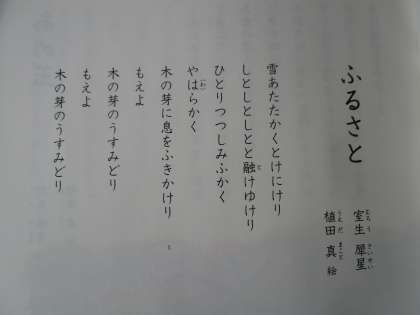 ふるさと
室生 犀星
植田 真 絵
雪あたたかくとけにけり
しとしとしとと融けゆけり
ひとりつつしみふかく
やはらかく
木の芽に息をふきかけり
もえよ
木の芽のうすみどり
もえよ
木の芽のうすみどり